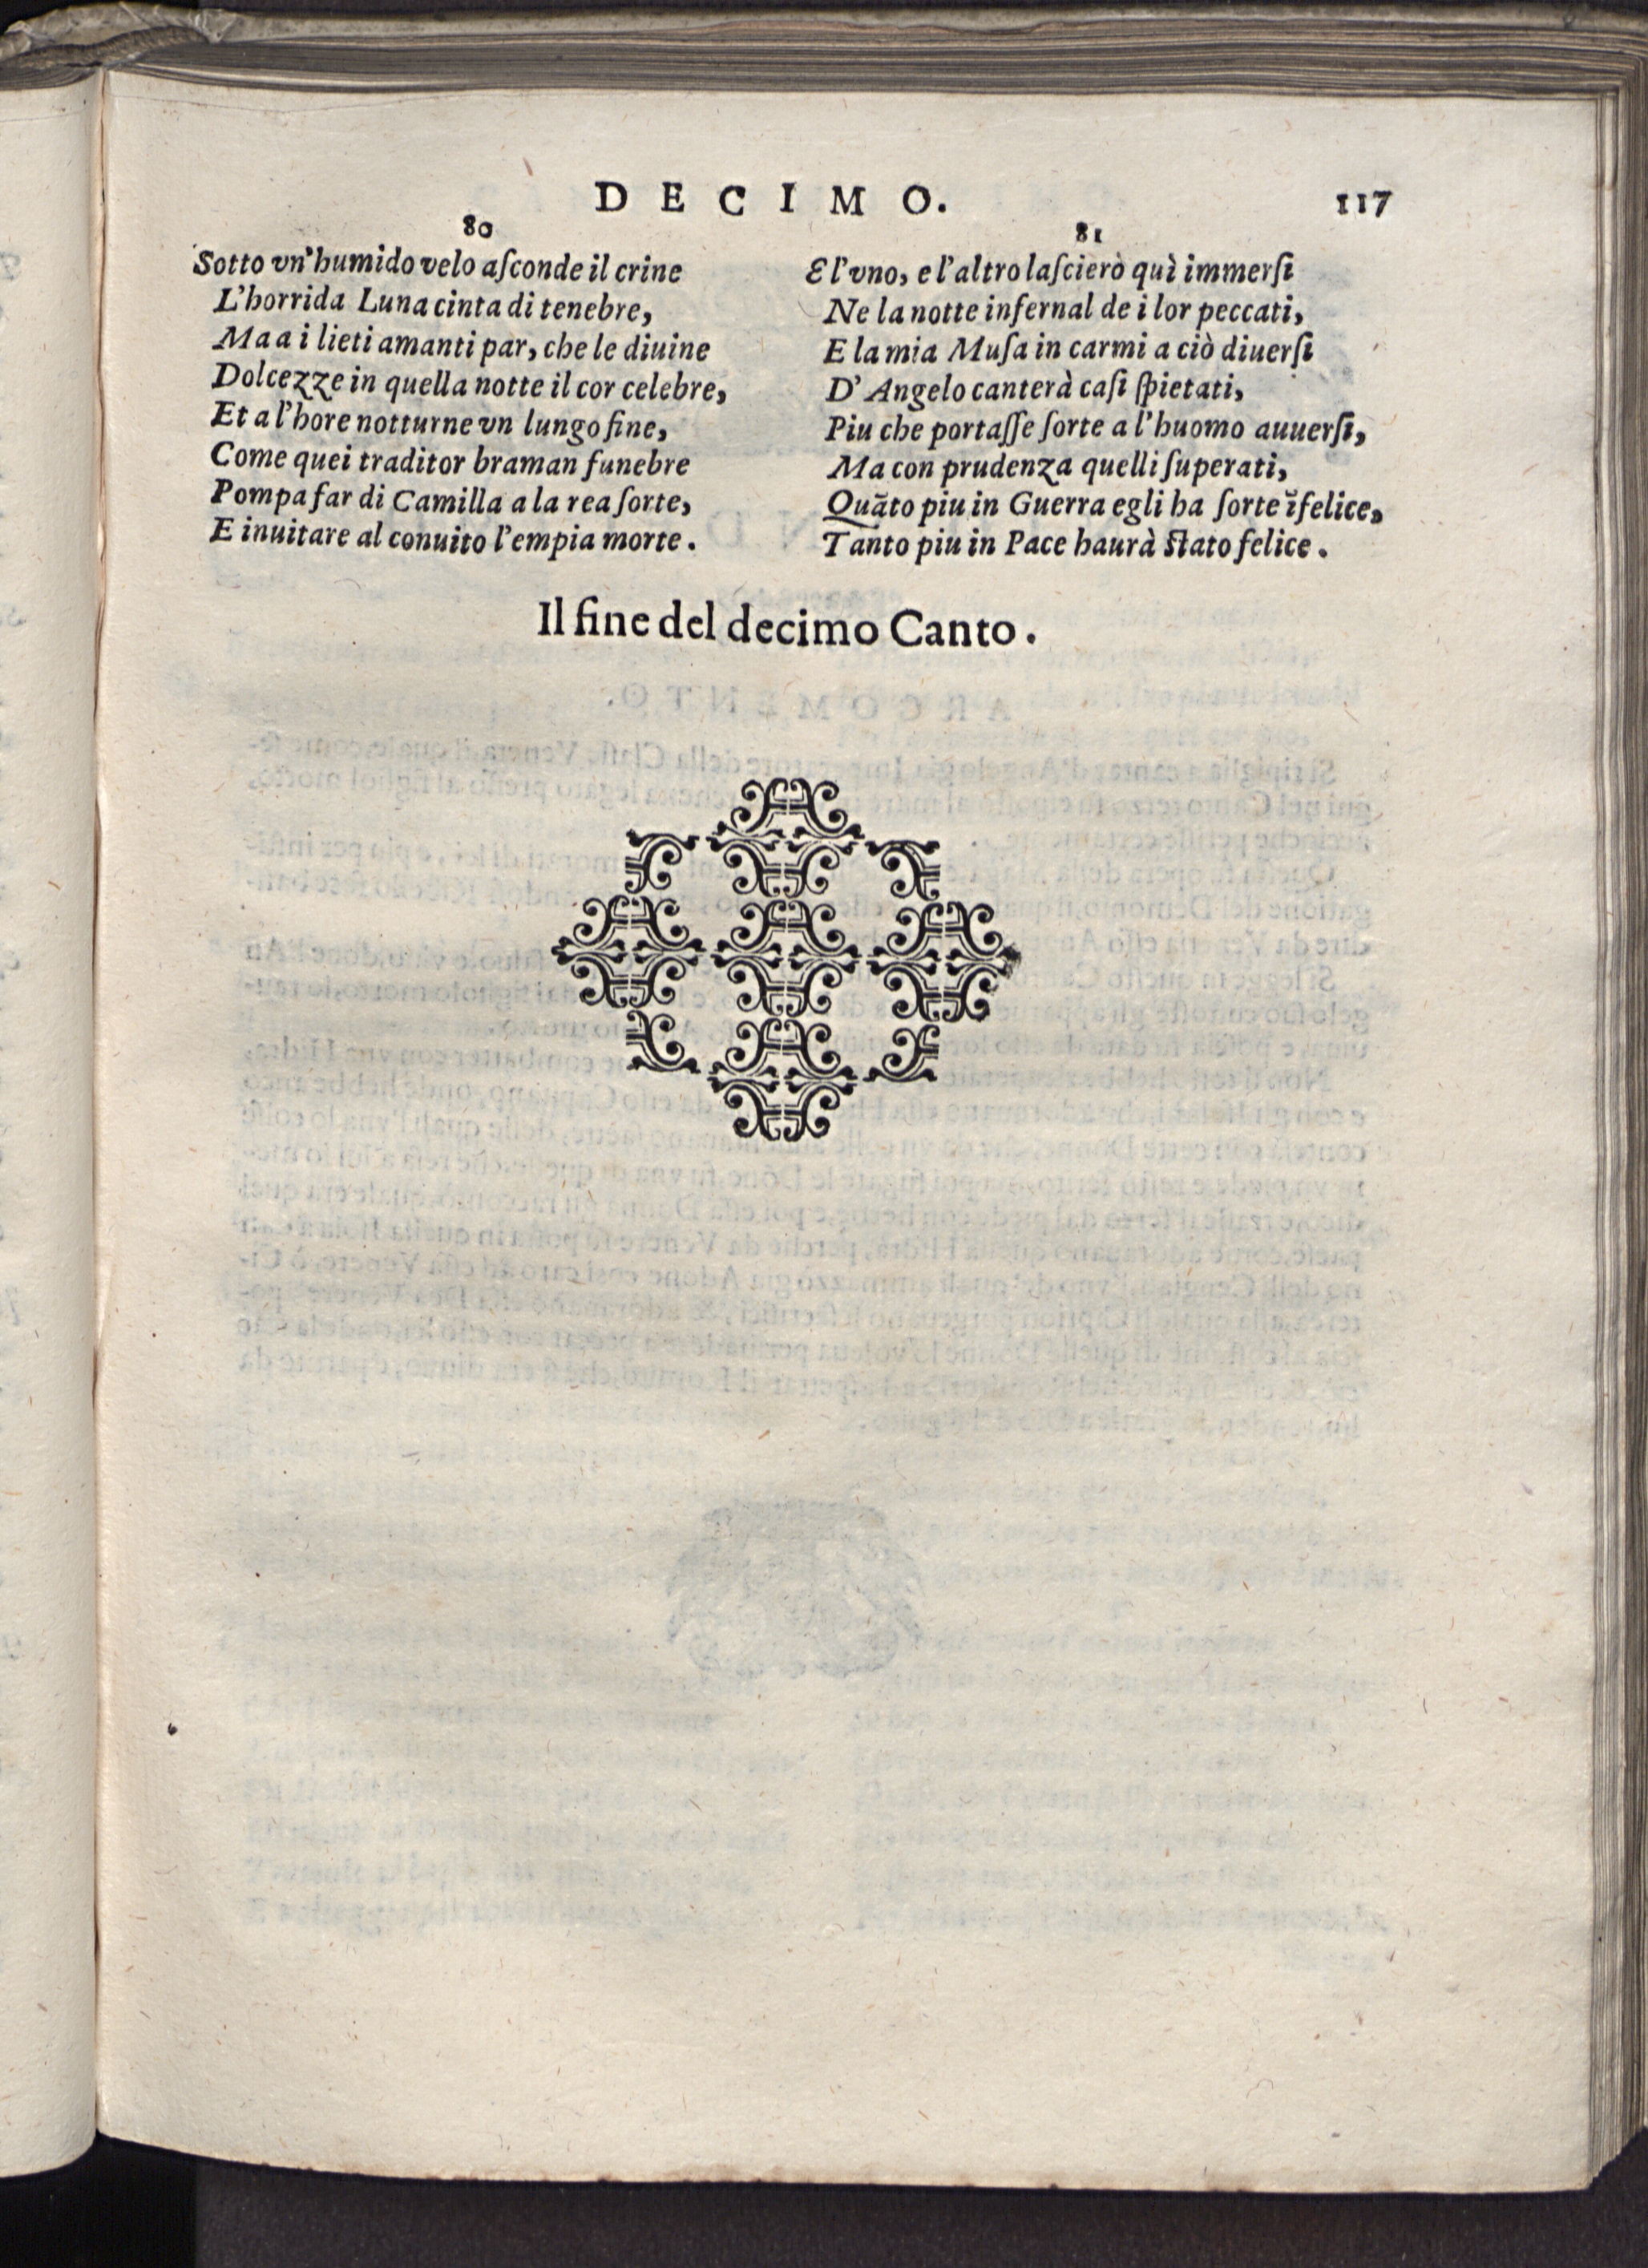 DECIMO. 117
80
Sotto vn'humido velo aſconde il crine
L'horrida Luna cinta di tenebre,
Ma a i lieti amanti par, che le diuine
Dolcezze in quella notte il cor celebre,
Et a l'hore notturne vn lungo fine,
Come quei traditor braman funebre
Pompa far di Camilla a la rea ſorte,
E inuitare al conuito l'empia morte.
81
E l'vno, e l'altro laſcierò quì immerſi
Ne la notte infernal de i lor peccati,
E la mia Muſa in carmi a ciò diuerſi
D'Angelo canterà caſi ſpietati,
Piu che portaſſe ſorte a l'huomo auuerſi,
Ma con prudenza quelli ſuperati,
Quãto piu in Guerra egli ha ſorte ĩfelice,
Tanto piu in Pace haurà ſtato felice.
Il fine del decimo Canto.